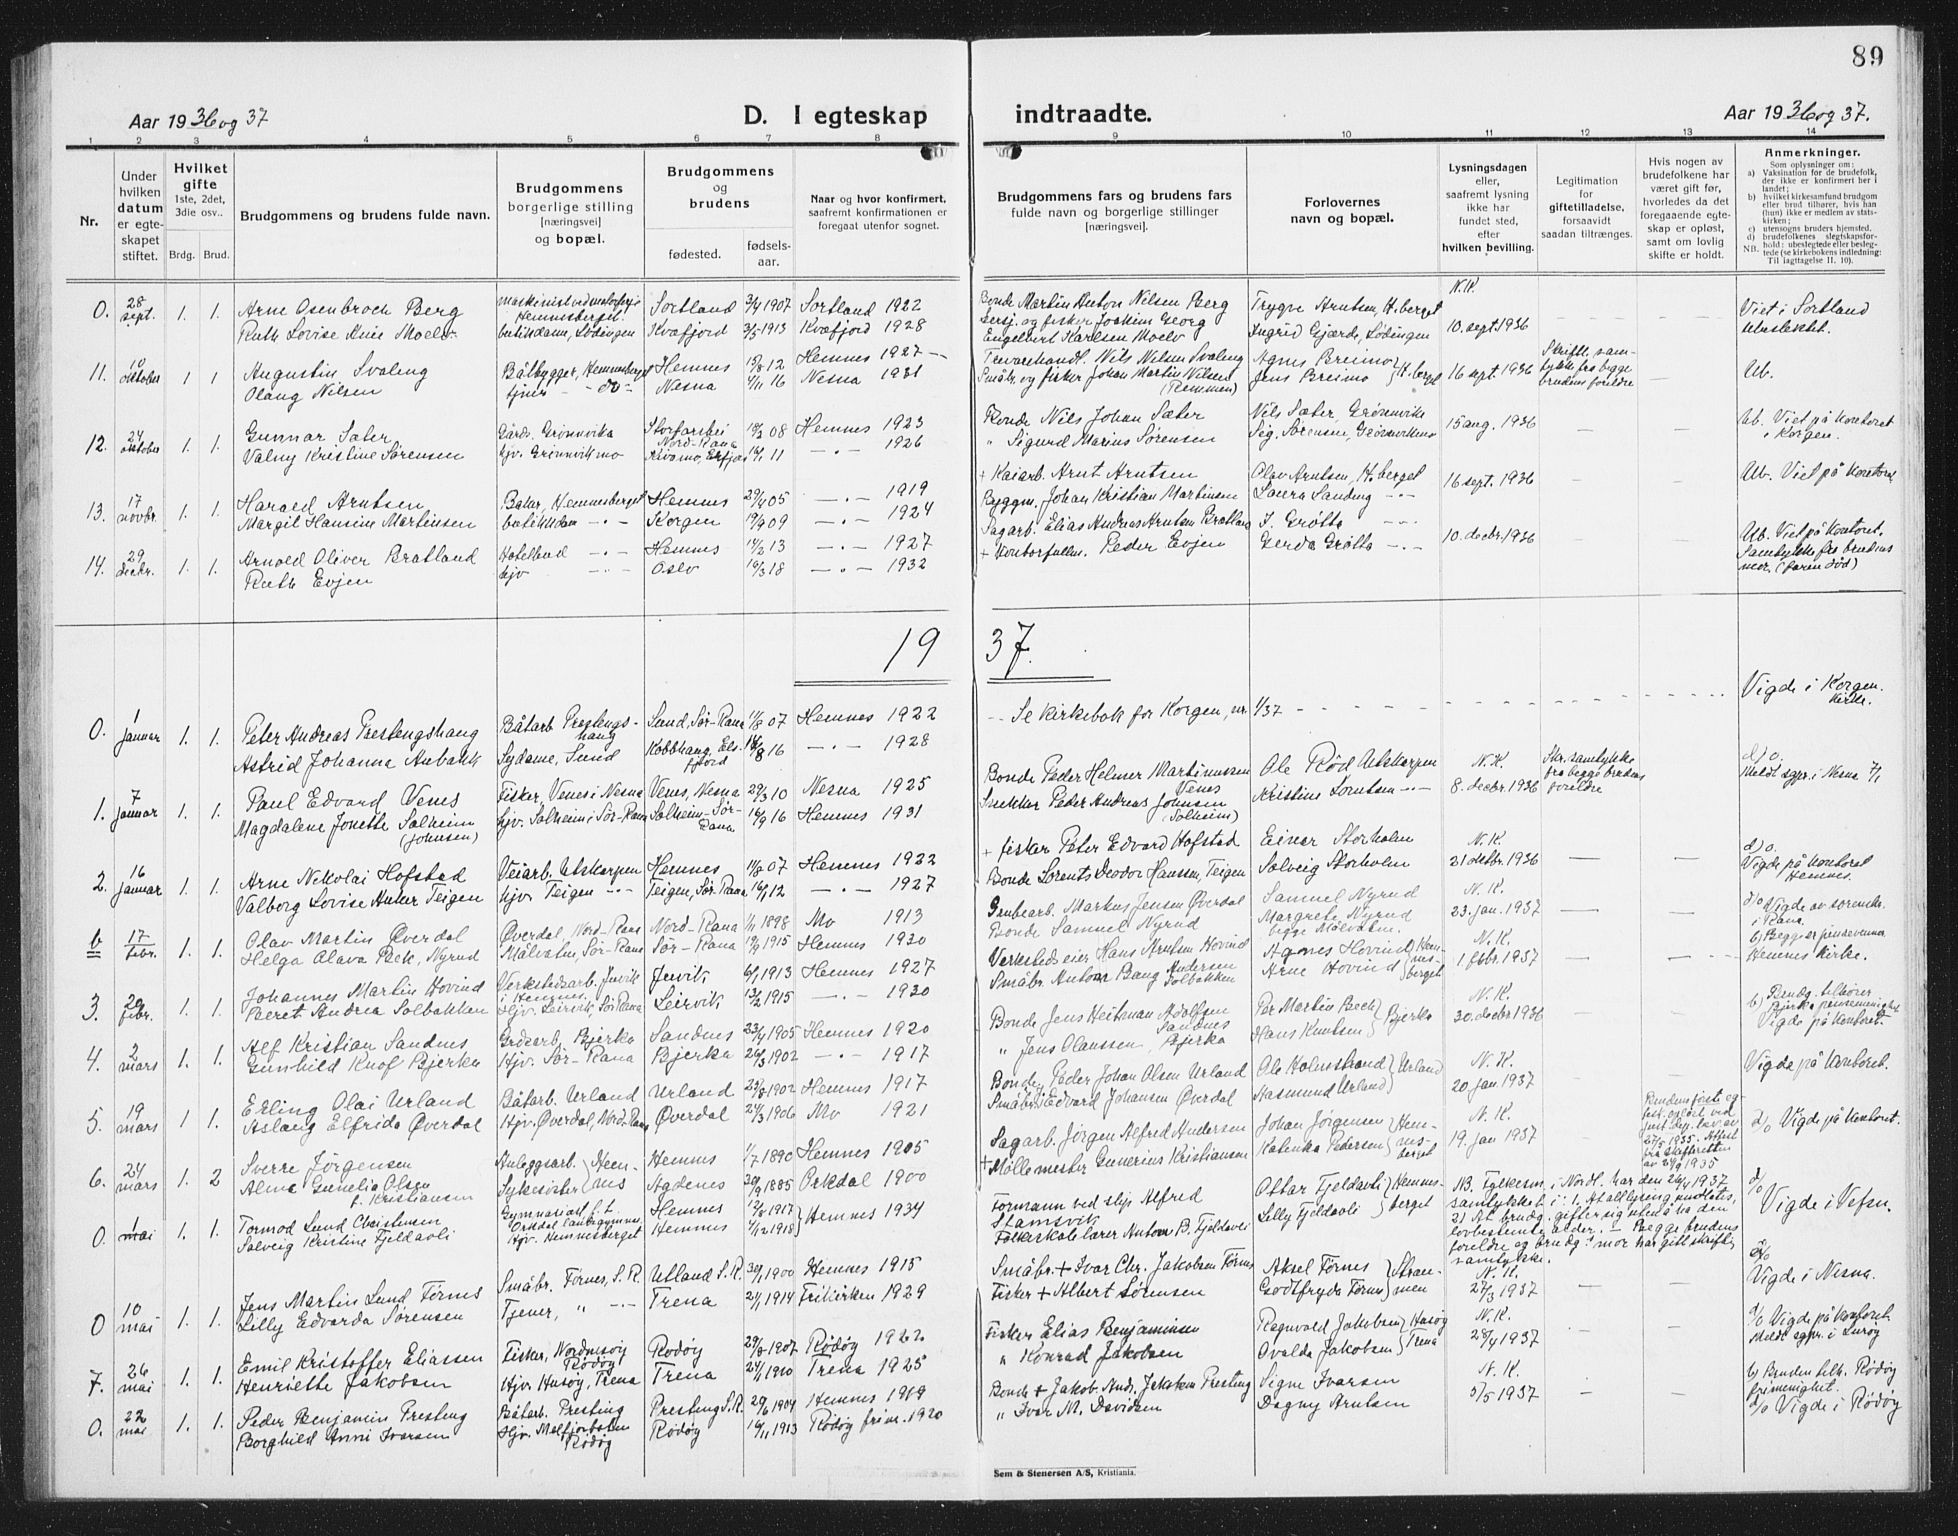 89
Aar 1936 og 37
D. I egteskap
indtraadte.
Aar 1936 og 37.
1 2 3 4 5 6 7 8 9 10 11 12 13 14
Nr.
Under hvilken datum er egteskapet stiftet.
Hvilket gifte 1ste, 2det, 3die osv..
Brdg. Brud.
Brudgommens og brudens fulde navn.
Brudgommens borgerlige stilling [næringsvei] og bopæl.
Brudgommens og brudens
fødested.
fødsels-aar.
Naar og hvor konfirmert, saafremt konfirmationen er foregaat utenfor sognet.
Brudgommens fars og brudens fars fulde navn og borgerlige stillinger [næringsvei].
Forlovernes navn og bopæl.
Lysningsdagen eller, saafremt lysning ikke har fundet sted, efter hvilken bevilling.
Legitimation for giftetilladelse, forsaavidt saadan tiltrænges.
Hvis nogen av brudefolkene har været gift før, hvorledes da det foregaaende egteskap er opløst, samt om lovlig skifte er holdt.
Anmerkninger.
Som oplysninger om:
a) Vaksination for de brudefolk, der ikke er konfirmert her i landet;
b) hvilket kirkesamfund brudgom eller brud tilhører, hvis han (hun) ikke er medlem av statskirken;
c) utensogns bruders hjemsted.
d) brudefolkenes slegtskapsforhold: ubeslegtede eller beslegtede (se kirkebokens indledning:
NB. Til iagttagelse II. 10).
0. 28 sept. 1. 1. Arne Osenbroch Berg Sortland 3/4 1907 Sortland 1922 Bonde Martin Anton Nilsen Berg Trygve Arntsen, H.berget N.K. Viet i Sortland
butikdame, Lødingen Kvæfjord 3/5 1913 Kvæfjord 1928 Engelbert Karlsen Moelv Ingrid Gjærde, Lødingen 10. sept. 1936
11. 10 oktober 1 1 Augustin Svaleng Båtbygger, Hemnesberget Hemnes 15/8 12 Hemnes 1927 Trevarehandl. Nils Nilsen Svaleng Agnes Breimo 16 sept. 1936 Skriftl. samtykke fra begge brudens foreldre Ub.
Olaug Nilsen tjener - do - Nesna 4/11 16 Nesna 1931 Småbr. og fisker Johan Martin Nilsen (Remmen) Jens Breimo H.berget
12. 24 oktober 1. 1. Gunnar Sæter Gårds. Grønnvika Nord-Rana 08 Hemnes 1923 Bonde Nils Johan Sæter Nils Sæter, Grønnvika 15 aug. 1936 Ub. Viet på kontoret i Korgen.
Valny Kristine Sørensen hjv. Grønnvikmo 11 -.- 1926 " Sigurd Marius Sørensen Sig. Sørensen, Grønnvikmo
13. 17 novbr. 1. 1. Harald Arntsen Baker, Hemnesberget Hemnes 29/4 05 -.- 1919 + Kaiarb. Arnt Arntsen Olav Arntsen, H.berget 16 sept. 1936 Ub. Viet på kontoret
Margit Hansine Martinsen butikkdam -.- Korgen 19/9 09 -.- 1924 Byggm. Johan Kristian Martinsen Laura Sanding -.-
14. 29 decbr. 1. 1. Arnold Oliver Bratland Hotelbud -.- Hemnes 14/2 13 -.- 1927 Sagarb. Elias Andreas Arntsen Bratland J. Grøtte -.- 10. decbr. 1936 Ub. Viet på kontoret. Samtykke fra brudens mor. (faren død)
Ruth Evjen hjv -.- Oslo 16/3 18 -.- 1932 + Kontorfullm. Peder Evjen Gerda Grøtte -.-
19 37.
0. 1 januar 1. 1. Peter Andreas Prestengshaug Båtarb Prestengshaug Sund, Sør-Rana 11/8 07 Hemnes 1922 -- Se kirkebok for Korgen, nr. 1/37 Vigde i Korgen kirke.
Astrid Johanna Aubakk Sydame, Sund Kobbhaug, Elsfjord 16/8 16 -.- 1928
1. 7 januar 1. 1. Paul Edvard Venes Fisker, Venes i Nesna Venes, Nesna 29/3 10 Nesna 1925 Bonde Peder Helmer Martinussen Venes Ole Rød Utskarpen N.K. 8. decbr. 1936 Skr. samtykke fra begge brudens foreldre d/o. Meldt sgpr. i Nesna 7/1
Magdalene Jonette Solheim (Johnsen) hjv. Solheim i Sør-Rana Solheim - Sør-Rana 16/9 16 Hemnes 1931 Snekker Peder Andreas Johnsen (Solheim) Kristine Lorntsen -.-
2. 16 januar 1. 1. Arne Nikolai Hofstad Veiarb. Utskarpen Hemnes 11/8 07 Hemnes 1922 + fisker Peter Edvard Hofstad Einar Storholm N.K. 21 oktbr. 1936 d/o. Vigde på kontoret Hemnes.
Valborg Lovise Teigen hjv. Teigen -.- Teigen, Sør-Rana 16/1 12 -.- 1927 Bonde Lorents Deodor Hanssen, Teigen Solveig Storholm
b 17 febr. 1. 1. Olav Martin Øverdal Øverdal, Nord-Rana Nord-Rana 1/11 1898 Mo 1913 Grubearb. Markus Jensen Øverdal Samuel Nyrud N.K. 23. jan. 1937 d/o Vigde av sorenskr. i Rana.
Helga Olava Bek, Nyrud Målvatn, Sør-Rana Sør-Rana 1915 Hemnes 1930 Bonde Samuel Nyrud Margrete Nyrud begge Målvatn. b) Begge er pinsevenner
3. 20 febr. 1. 1. Johannes Martin Hovind Verkstedsarb. Juvik i Hemnes Juvik 6/1 1913 Hemnes 1927 Verkstedseier Hans Arntsen Hovind Agnes Hovind Hemnesberget N.K. 1 febr. 1937 Hemnes kirke.
Beret Andrea Solbakken Hjv. Leirvik, Sør Rana Leirvik 13/2 1915 -.- 1930 Småbr. Anton Bang Andersen Solbakken Arne Hovind
4. 2 mars 1. 1. Alf Kristian Sandnes Grdsarb, Bjerka Sandnes 23/4 1905 Hemnes 1920 Bonde Jens Heitman Adolfsen Sandnes Per Martin Bech Bjerka N.K. 30. decbr 1936 b) Brudg. tilhører Bjerka pinsemenighet Vigde på kontoret.
Gunhild Knof Bjerka Hjv. Sør-Rana Bjerka 26/3 1902 -.- 1917 " Jens Olaussen, Bjerka Hans Knutsen
5. 19 mars 1 1. Erling Olai Urland Båtarb. Urland Urland 25/8 1902 Hemnes 1917 Bonde Peder Johan Olsen Urland Ole Holmstrand Urland N.K. 20 jan. 1937 Vigde på kontoret.
Aslaug Elfrida Øverdal Hjv. Øverdal, Nord-Rana Øverdal 24/3 1906 Mo 1921 Småbr. Edvard Johansen Øverdal Rasmund Urland
6. 24 mars 1. 2 Sverre Jørgensen Anleggsarb. Hemnes Hemnes 1/7 1890 Hemnes 1905 Sagarb. Jørgen Alfred Andersen Johan Jørgensen Hemnesberget N.K. 19. jan 1937 d/o Vigde på kontoret.
Alma Gunelia Olsen f. Kristiansen Sykesøster 30/9 1885 Orkdal 1900 + Møllemester Gunerius Kristiansen Katinka Pedersen
0. mai 1. 1. Tormod Lund Christensen Gymnasiast, f.t. Orkdal landsgymnas Hemnes 1917 Hemnes 1934 Formann ved slip Alfred Stamsvik Ottar Fjeldavli Hemnesberget NB. Fylkesm. i Nordl. har den 26/4 1937 samtykket i: 1. At allysing undlates, 2) At brudg. gifter sig uten å ha den lovbestemte alder. - Begge brudens foreldre og brudg.s mor har gitt skriftl. samtykke. d/o Vigde i Vefsn.
Solveig Kristine Fjeldavli Hjv. Hemnesberget Hemnes 1/12 1918 Folkeskolelærer Anton B. Fjeldavli Lilly Fjeldavli
0 10 mai 1. 1. Jens Martin Lund Førnes Småbr. Førnes, S.R. Utland S.R. 30/1 1900 Hemnes 1915 Småbr. + Ivar Chr. Jakobsen Førnes Aksel Førnes N.K. 27/3 1937 d/o Vigde i Nesna.
Lilly Edvarda Sørensen Tjener, " -.- Træna 21/1 1914 Frikirken 1929 Fisker + Albert Sørensen Godtfryd Førnes
7. 26 mai 1. 1. Emil Kristoffer Eliassen Fisker, Nordnesøy Rødøy Rødøy 29/8 1907 Rødøy 1922 Fisker Elias Benjaminsen Ragnvald Jakobsen Husøy Træna N.K. 28/4 1937 d/o Vigde på kontoret Meldt sgpr. i Lurøy
Henriette Jakobsen Hjv. Husøy, Træna Træna 24/1 1910 Træna 1925 " Konrad Jakobsen Ovalda Jakobsen
0. 22 mai 1. 1. Peder Benjamin Presteng Båtarb. Presteng Presteng S.R. 29/6 1904 Hemnes 1919 Bonde + Jakob And. Jakobsen Presteng Signe Ivarsen N.K. 5/5 1937 b) Bruden tilh. Rødøy frimenighet.
Borghild Anni Ivarsen Hjv. Melfjordbotn Rødøy Rødøy 16/11 1913 Rødøy frim. 1920 " Ivar M. Davidsen Dagny Arntsen d/o Vigde i Rødøy
Sem & Stenersen A/S, Kristiania.